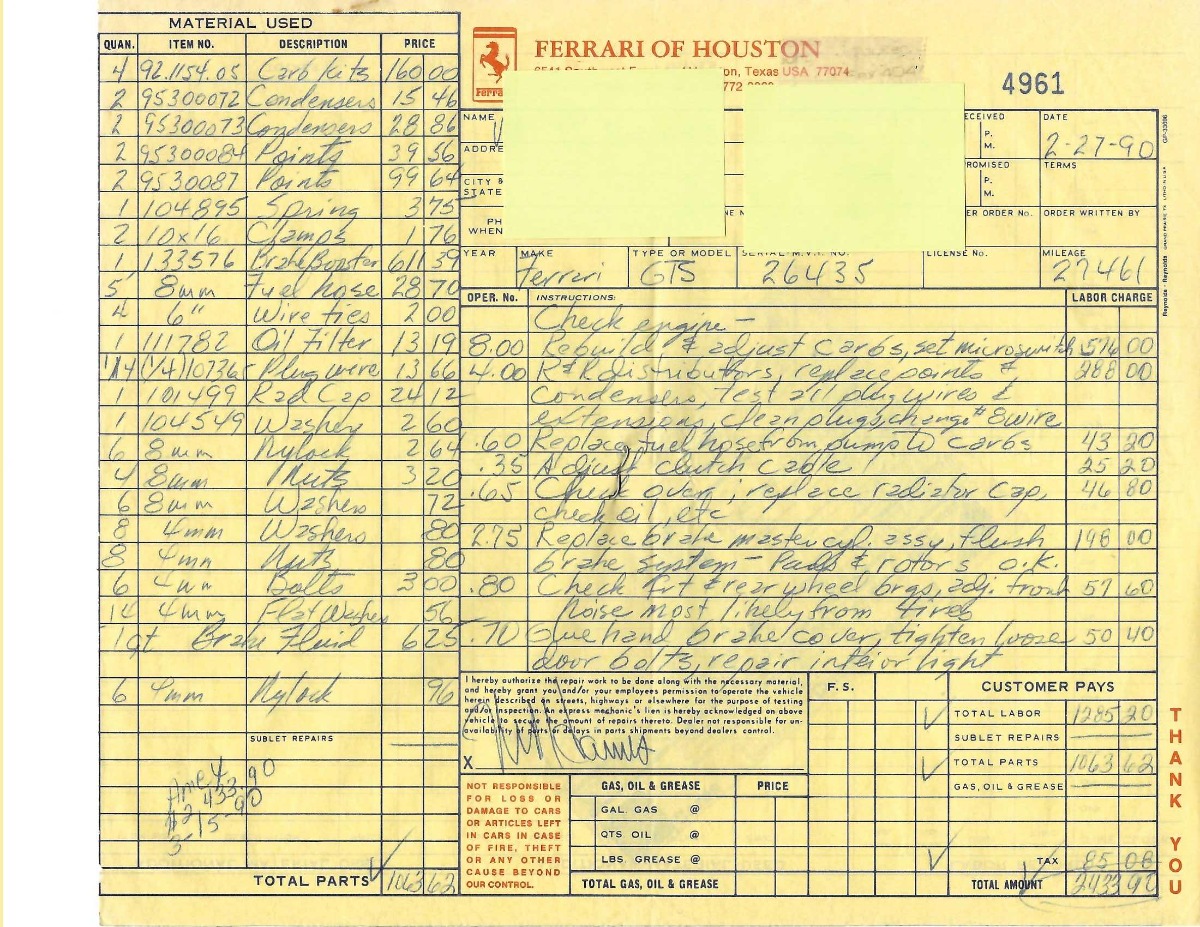 MATERIAL USED
QUAN. ITEM NO. DESCRIPTION PRICE
4 92.1154.05 Carb Kits 160 00
2 95300072 Condensers 15 46
2 95300073 Condensers 28 86
2 95300084 Points 39 56
2 9530087 Points 99 64
1 104895 Spring 3 75
2 10x16 Clamps 1 76
1 133576 Brake Booster 611 39
5' 8mm Fuel hose 28 70
4 6" Wire ties 2 00
1 111782 Oil Filter 13 19
Plug wire 13 66
1 101499 Rad Cap 24 12
1 104549 Washer 2 60
6 8mm Nylock 2 64
4 8mm Nuts 3 20
6 8mm Washers 72
8 4mm Washers 80
8 4mm Nuts 80
6 4mm Bolts 3 00
14 4mm Flat Washers 56
1qt Brake Fluid 6 25
6 4mm Nylock 96
SUBLET REPAIRS
Amex
$2433.90
3-15-90
TOTAL PARTS 1063 62
FERRARI OF HOUSTON
Houston, Texas USA 77074
772
4961
NAME
ADDRE
CITY &
STATE
PH
WHEN
ECEIVED
P.
M.
ROMISED
P.
M.
DATE
2-27-90
TERMS
ER ORDER No. ORDER WRITTEN BY
YEAR MAKE TYPE OR MODEL SERIAL-M.V.I. NO. LICENSE No. MILEAGE
Ferrari GTS 26435 27461
OPER. No. INSTRUCTIONS: LABOR CHARGE
Check engine -
8.00 Rebuild & adjust carbs, set microswitch 576 00
4.00 R&R distributors, replace points & 288 00
condensers, test all plug wires &
extensions, clean plugs, change #8 wire
.60 Replace fuel hose from pump to carbs 43 20
.35 Adjust clutch cable 25 20
.65 Check over; replace radiator cap, 46 80
check oil, etc
2.75 Replace brake master cyl. assy, flush 198 00
brake system - Pads & rotors O.K.
.80 Check frt & rear wheel brgs, adj. front 57 60
Noise most likely from tires
.70 Glue hand brake cover, tighten loose 50 40
door bolts, repair interior light
I hereby authorize the repair work to be done along with the necessary material,
and hereby grant you and/or your employees permission to operate the vehicle
herein described on streets, highways or elsewhere for the purpose of testing
and/or inspection. An express mechanic's lien is hereby acknowledged on above
vehicle to secure the amount of repairs thereto. Dealer not responsible for un-
availability of parts or delays in parts shipments beyond dealers control.
X
F.S. CUSTOMER PAYS
TOTAL LABOR 1285 20
SUBLET REPAIRS
TOTAL PARTS 1063 62
GAS, OIL & GREASE
TAX 85 08
TOTAL AMOUNT 2433 90
NOT RESPONSIBLE
FOR LOSS OR
DAMAGE TO CARS
OR ARTICLES LEFT
IN CARS IN CASE
OF FIRE, THEFT
OR ANY OTHER
CAUSE BEYOND
OUR CONTROL.
GAS, OIL & GREASE PRICE
GAL. GAS @
QTS. OIL @
LBS. GREASE @
TOTAL GAS, OIL & GREASE
THANK YOU